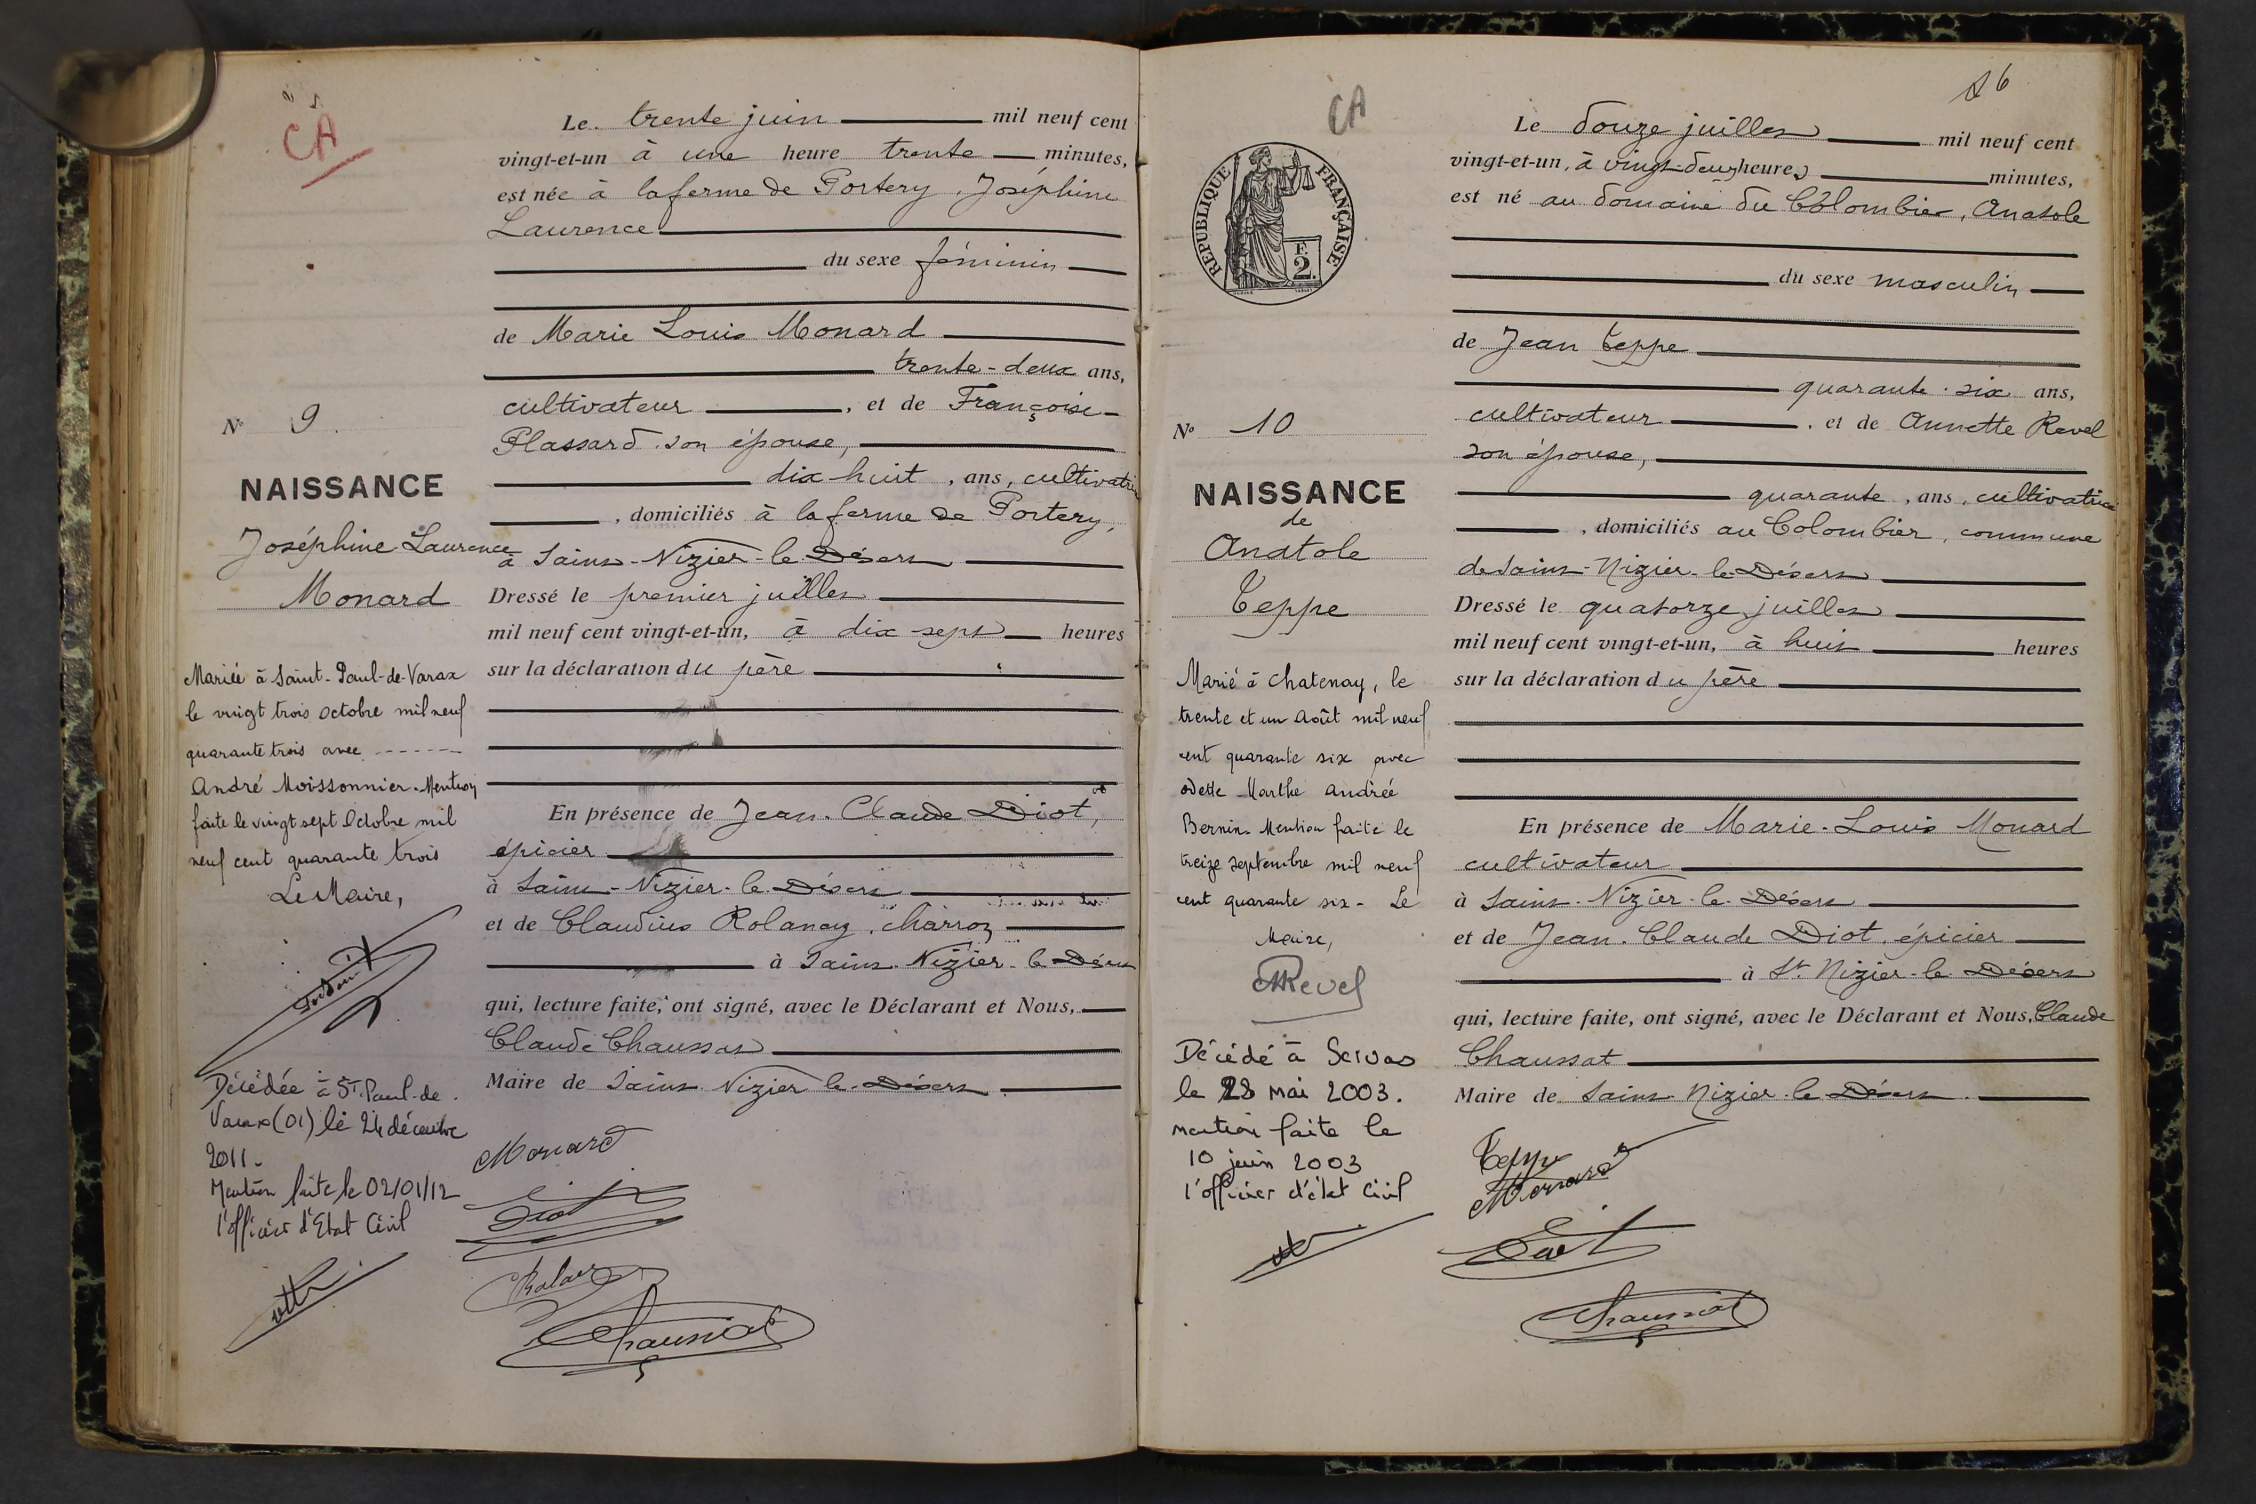 CA
Le trente juin mil neuf cent
vingt-et-un à une heure trente minutes,
est née à la ferme de Portery, Joséphine
Laurence
du sexe féminin
de Marie Louis Monard
trente-deux ans,
cultivateur, et de Françoise
Plassard son épouse,
dix huit, ans, cultivatrice
, domiciliés à la ferme de Portery,
à Saint-Nizier-le-Désert
Dressé le premier juillet
mil neuf cent vingt-et-un, à dix sept heures
sur la déclaration du père
En présence de Jean-Claude Diot,
épicier
à Saint-Nizier-le-Désert
et de Claudius Rolanay, charron
à Saint-Nizier-le-Désert
qui, lecture faite, ont signé, avec le Déclarant et Nous,
Claude Chaussat
Maire de Saint Nizier le Désert.
Monard
Diot
Chaussat
N° 9.
NAISSANCE
Joséphine Laurence
Monard
Mariée à Saint-Paul-de-Varax
le vingt trois octobre mil neuf
quarante trois avec -------
André Moissonnier. Mention
faite le vingt sept Octobre mil
neuf cent quarante trois
Le Maire,
Décédée à St Paul-de-
Varax (01) le 24 décembre
2011.
Mention faite le 02/01/12
l'officier d'Etat Civil
16
CA
RÉPUBLIQUE FRANÇAISE
F.
2
Le douze juillet mil neuf cent
vingt-et-un, à vingt-deux heures minutes,
est né au domaine du Colombier, Anatole
du sexe masculin
de Jean Teppe
quarante-six ans,
cultivateur, et de Annette Revel
son épouse,
quarante, ans, cultivatrice
, domiciliés au Colombier, commune
de Saint-Nizier-le-Désert
Dressé le quatorze juillet
mil neuf cent vingt-et-un, à huit heures
sur la déclaration du père
En présence de Marie-Louis Monard
cultivateur
à Saint-Nizier-le-Désert
et de Jean-Claude Diot, épicier
à St Nizier-le-Désert
qui, lecture faite, ont signé, avec le Déclarant et Nous, Claude
Chaussat
Maire de Saint Nizier-le-Désert.
Teppe
Monard
Diot
Chaussat
N° 10
NAISSANCE
de
Anatole
Teppe
Marié à Chatenay, le
trente et un Août mil neuf
cent quarante six avec
Odette Marthe Andrée
Bernin. Mention faite le
treize septembre mil neuf
cent quarante six - Le
Maire,
Revel
Décédé à Servas
le 28 mai 2003.
mention faite le
10 juin 2003
l'officier d'état civil